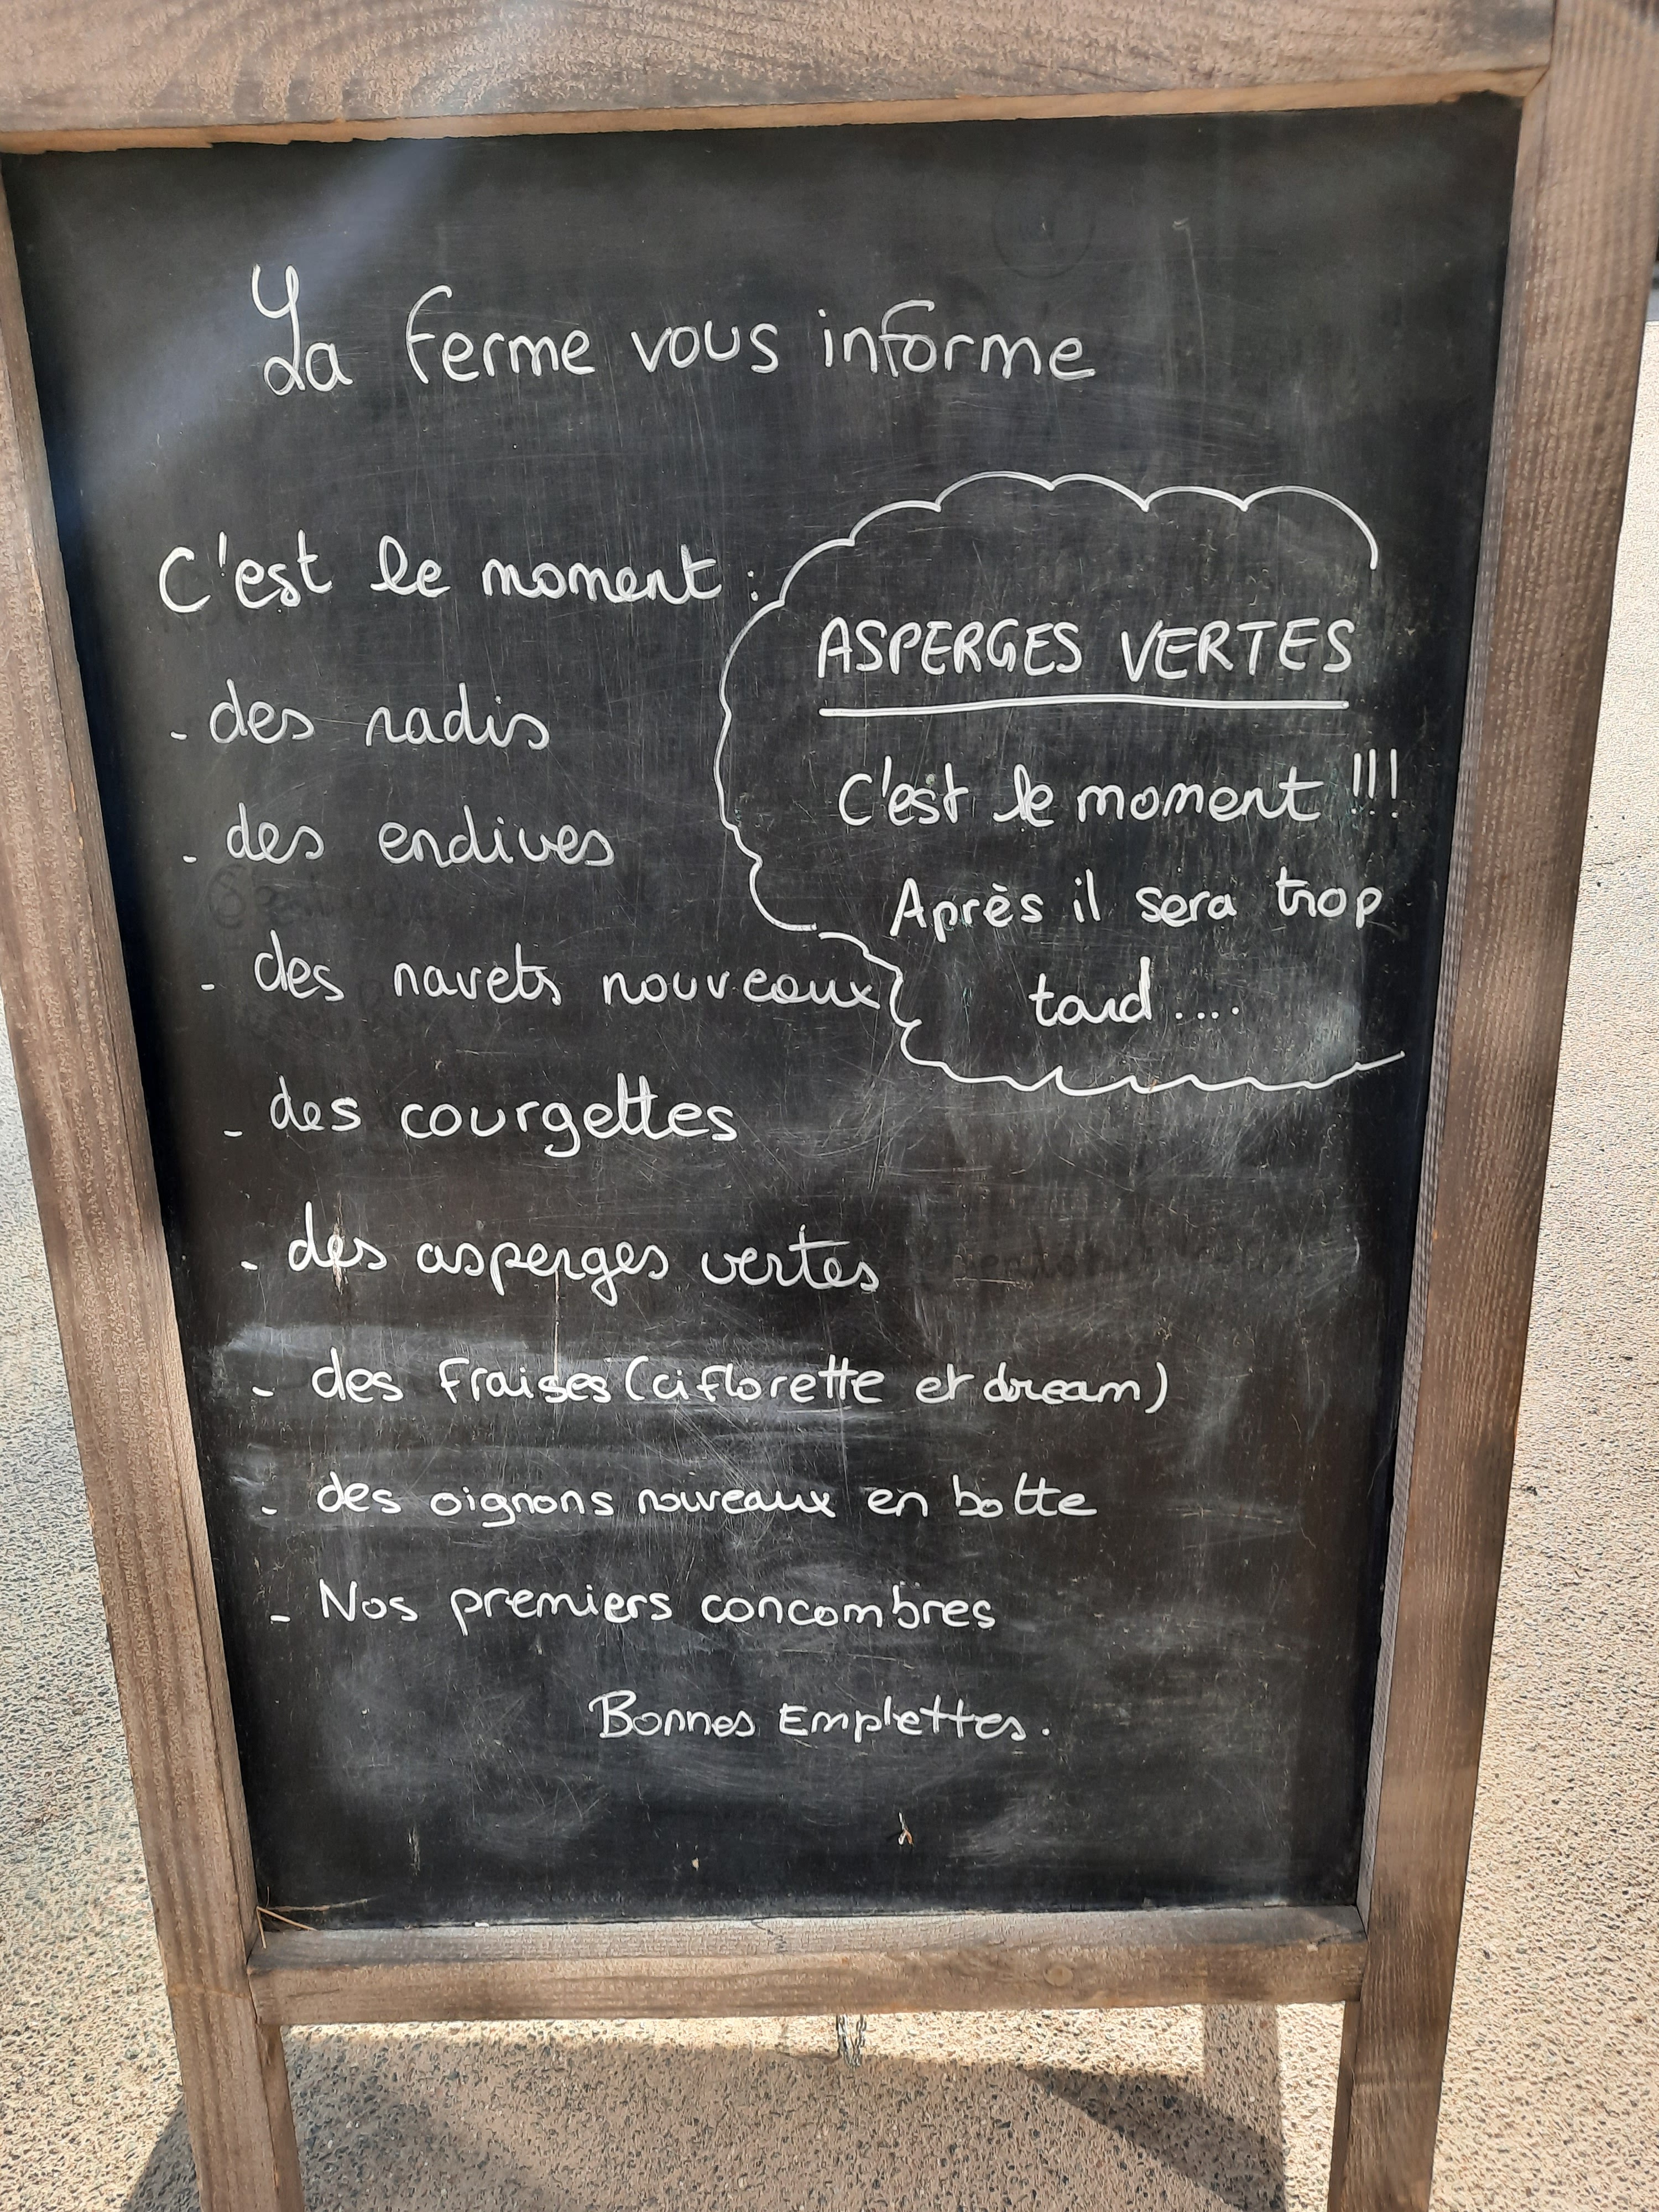 La ferme vous informe
C'est le moment :
- des radis
- des endives
- des navets nouveaux
- des courgettes
- des asperges vertes
- des fraises (ciflorette et dream)
- des oignons nouveaux en botte
- Nos premiers concombres
Bonnes Emplettes.
ASPERGES VERTES
C'est le moment !!!
Après il sera trop
tard ....